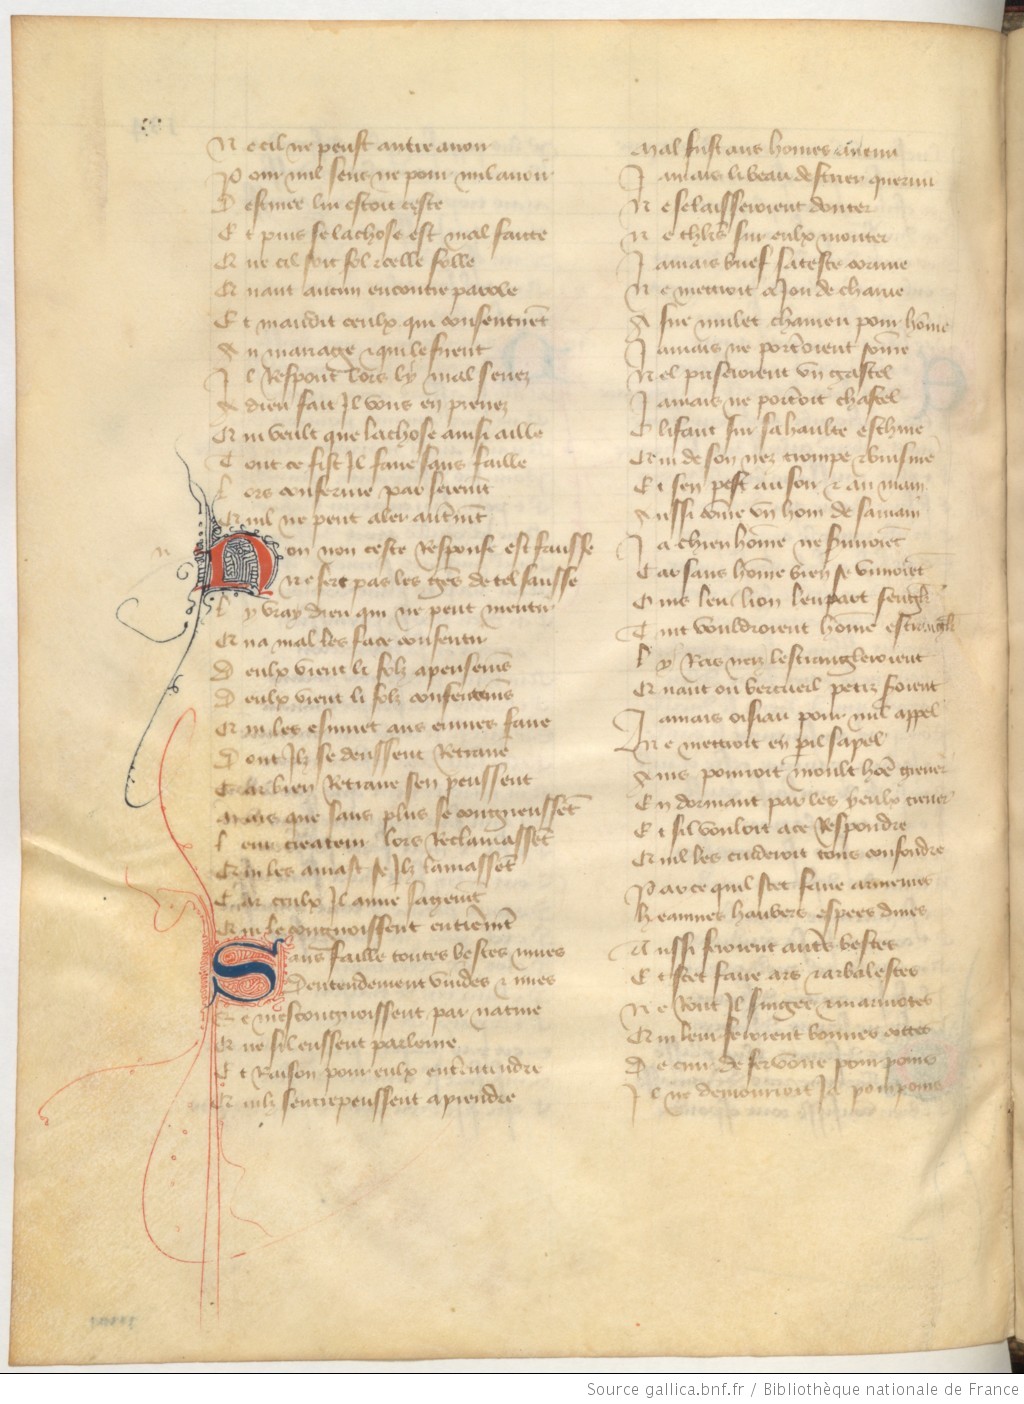 N e cil ne peust autre auoir
P our nul sens ne pour nul auoir
D estinee lui estoit ceste
E t puis se la chose est mal faicte
Q ue cil soit fol & celle folle
Q uant aucun encontre parole
E t maudit ceulx qui consentirẽt
L e mariage & qui le firent
I l Respont lors ly mal senez
A dieu fait Il vous en prenez
Q ui veult que la chose ainsi aille
T out ce fist Il faire sans faille
L ors conferme par seremẽt
Q uil ne peut aler autremẽt
N on non ceste Response est faulsse
N e sert pas les gẽs de tel saulsse
L y vray dieu qui ne peut mentir
Q ui a mal les face consentir
D eulx vient li folz apensemẽs
D eulx vient li folz consentemẽs
Q ui les esmuet aus euures faire
D ont Ilz se deussent Retraire
C ar bien Retraire sen peussent
M ais que sans plus se congneussẽt
L eur createur lors Reclamassẽt
Q ui les amast se Ilz lamassẽt
C ar ceulx Il aime sagemẽt
Q ui se congnoissent entieremẽt
S ans faille toutes bestes mues
D entendement vuides & nues
S e mescongnoissent par nature
Q ue sil eussent parleure
E t Raison pour eulx entrentendre
Q uilz sentrepeussent aprendre
Mal fust aus homes auenu
J amais li beau destrier quernu
N e se laisseroient donter
N e cheualiers sur eulx monter
J amais buef sa teste cornue
N e mettroit a Jou de charue
A sne mulet chameu pour hõme
J amais ne porteroient sõme
N el priseroient vn gastel
J amais ne porteroit chastel
O lifant sur sa haulte eschine
Q ui de son nez trompe & buisine
E t sen pest au soir & au main
A ussi cõme vn hom de sa main
J a chien hõme ne seruiroiẽt
C ar sans hõme bien se viuroiẽt
O urs leu lion leupart sengler
T uit vouldroient hõme estrangler
L y Ras neiz lestrangleroient
Q uant ou bercueil petiz seroient
J amais oisiau pour nul appel
N e mettroit en peril sa pel
A ins pourroit moult hõe greuer
E n dormant par les yeulx creuer
E t sil vouloit a ce Respondre
Q uil les cuideroit tous confondre
P ar ce quil scet faire armeures
H eaumes haubers espees dures
A ussi feroient autres bestes
E t scet faire ars & arbalestes
N e Ront Il singes & marmotes
Q ui leur feroient bonnes cottes
D e cuir de fer voire pourpoins
J l ne demourroit Ja pour poins
Source gallica.bnf.fr / Bibliothèque nationale de France